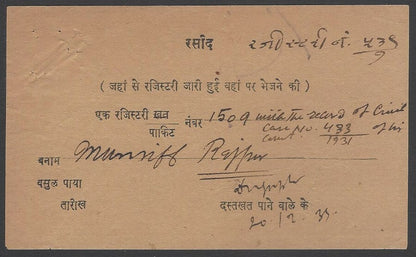 रसीद
રજીસ્ટરી નં. ५३९
( जहां से रजिस्टरी जारी हुई वहां पर भेजने की )
एक रजिस्टरी खत / पाकिट नंबर 1509 with the record of Civil
Case No. 483/1931 of his
court
बनाम Munsiff Rajpur
वसुल पाया
तारीख दस्तखत पाने वाले के